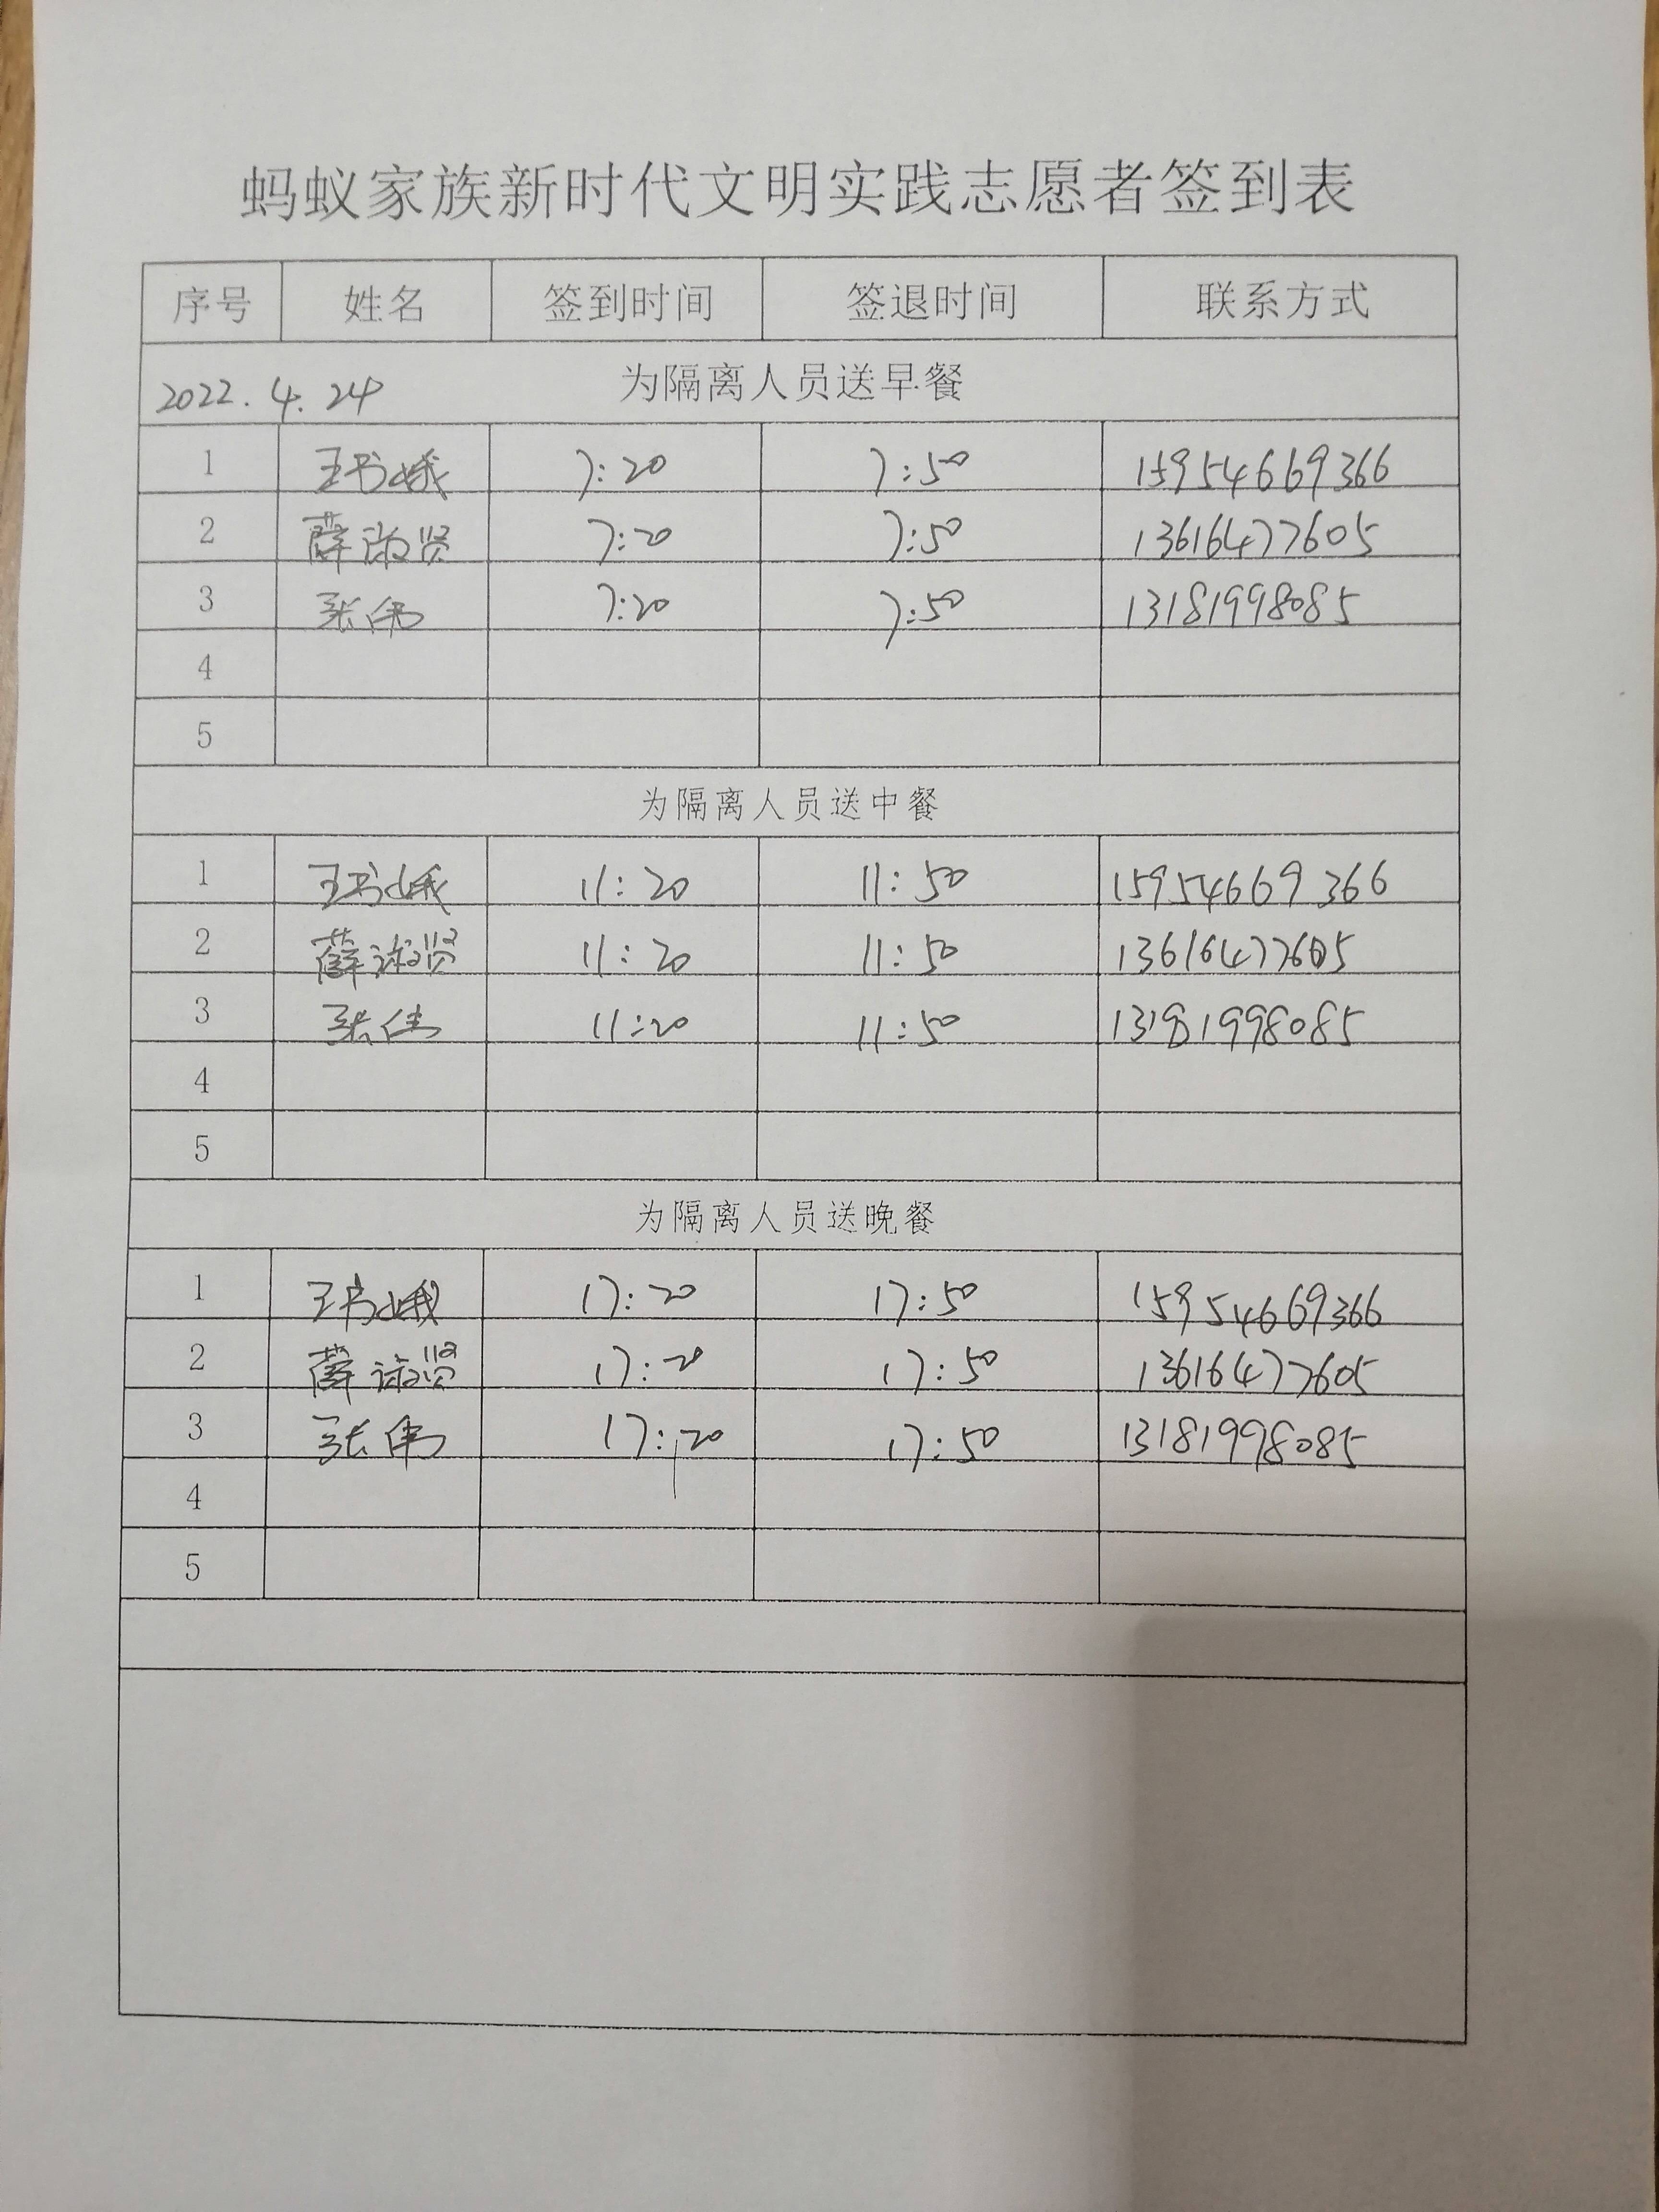 蚂蚁家族新时代文明实践志愿者签到表
序号 姓名 签到时间 签退时间 联系方式
2022.4.24 为隔离人员送早餐
1 王书娥 7:20 7:50 15954669366
2 薛淑贤 7:20 7:50 13616477605
3 张伟 7:20 7:50 13181998085
4
5
为隔离人员送中餐
1 王书娥 11:20 11:50 15954669366
2 薛淑贤 11:20 11:50 13616477605
3 张伟 11:20 11:50 13181998085
4
5
为隔离人员送晚餐
1 王书娥 17:20 17:50 15954669366
2 薛淑贤 17:20 17:50 13616477605
3 张伟 17:20 17:50 13181998085
4
5